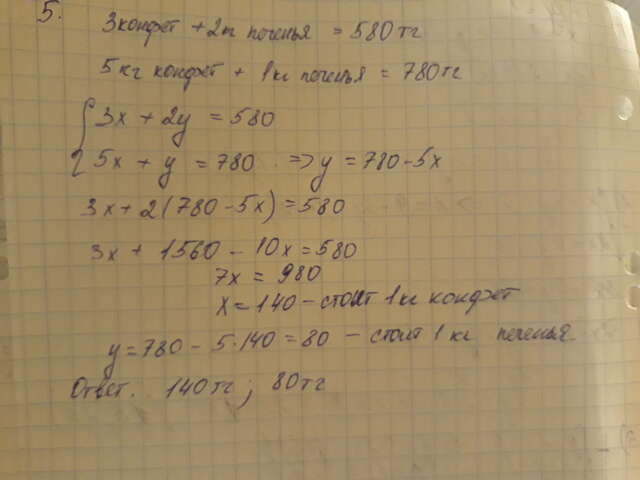 5.
3 конфет + 2кг печенья = 580тг
5кг конфет + 1кг печенья = 780тг
{ 3x + 2y = 580
5x + y = 780 . => y = 780-5x
3x + 2(780-5x) = 580
3x + 1560 - 10x = 580
7x = 980
x = 140 - стоит 1кг конфет
y = 780 - 5·140 = 80 - стоит 1кг печенья
Ответ. 140тг ; 80тг